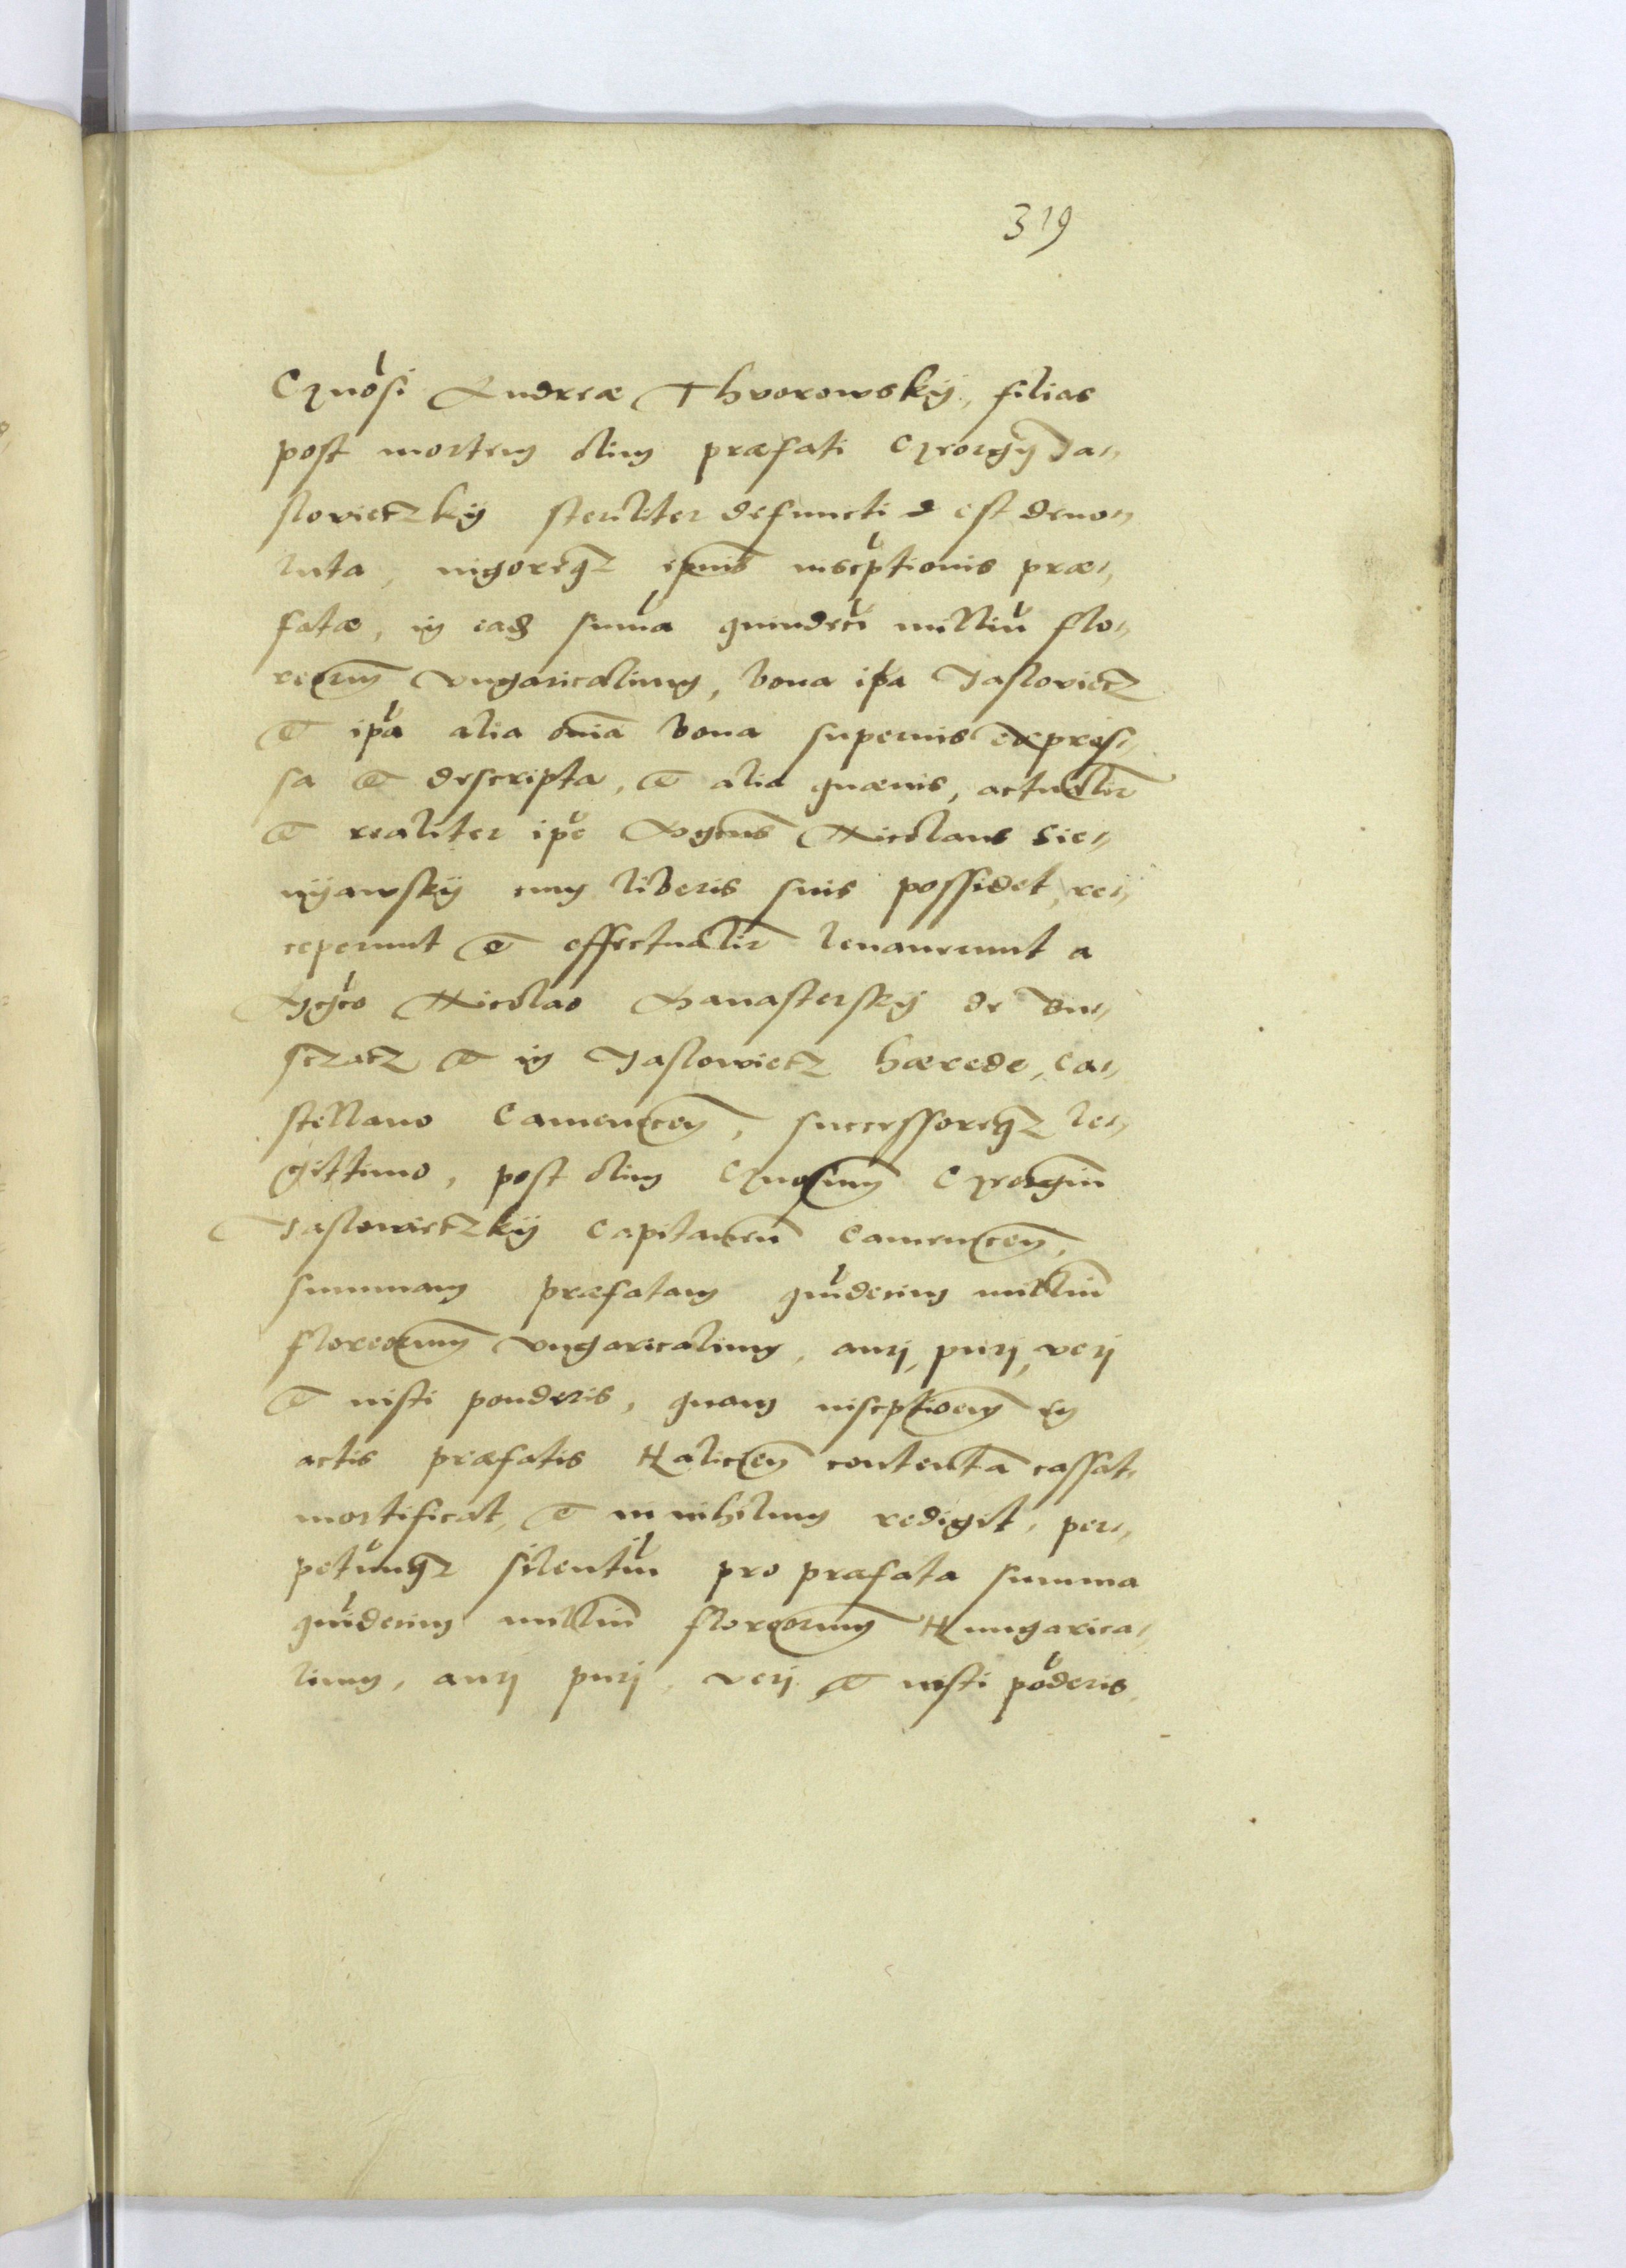 319
Gnosi Andreæ Thvorowskÿ, filias
post mortem olim præfati Georgÿ Ja-
slovietzkÿ steriliter defuncti est devo-
luta, vigoreq3 epmis inscptionis præ-
fatæ, in ead suma quindeci milliu flo-
renorum Vngaricalium, bona ipa Jaslovietz
et ipa alia omia bona superius expres-
sa et descripta, et alia quævis, actualir
et realiter ipe Mgcus Nicolaus Sie-
nÿawskÿ cum liberis suis possidet, re-
ceperunt et effectualir levaverunt a
Mgco Nicolao Manasterskÿ de Bu-
sczacz et in Jaslowietz hærede, Ca-
stellano Camencen, successoreq3 le-
gittimo, post olim Gnosum Georgiu
Jaslowietzkÿ Capitaneu Camencen,
summam præfatam quidecim milliu
florenorum Vngaricalium, aurj, purj, verj
et iusti ponderis, quam inscptionem in
actis præfatis Halicien contenta cassat,
mortificat, et in nihilum redigit, per-
petuumq3 silentiu pro præfata summa
quidecim milliu florenorum Hungarica-
lium, aurj purj, verj et iusti poderis,